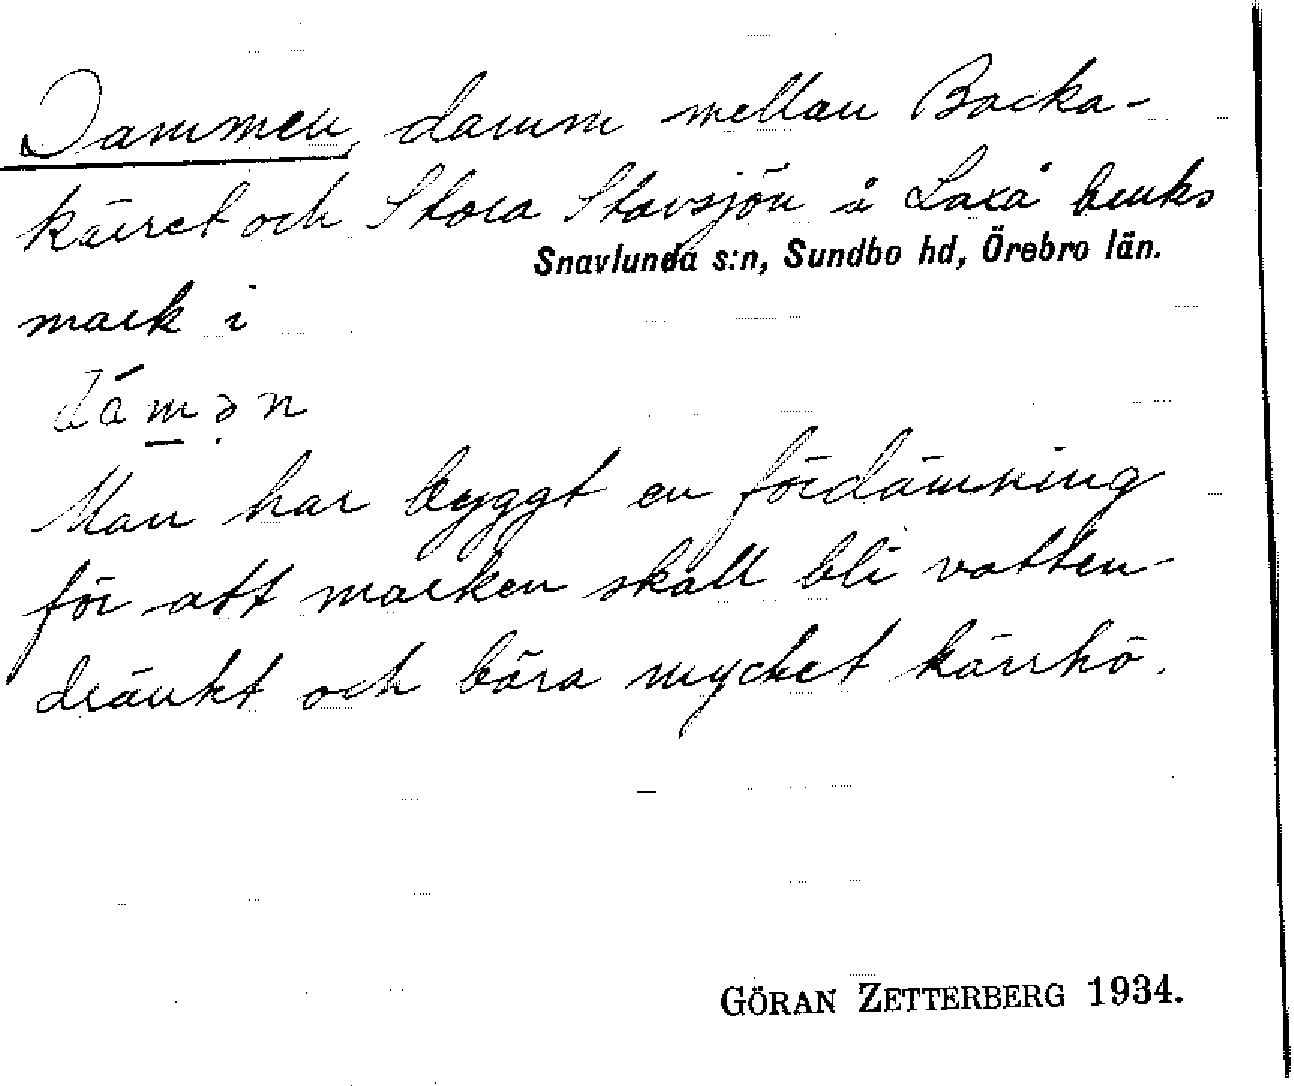 Dammen, damm mellan Backa-
kärret och Stora Stavsjön å Laxå bruks
Snavlunda s:n, Sundbo hd, Örebro län.
mark i
dámən
Man har byggt en fördämning
för att marken skall bli vatten-
dränkt och bära mycket kärrhö.
GÖRAN ZETTERBERG 1934.